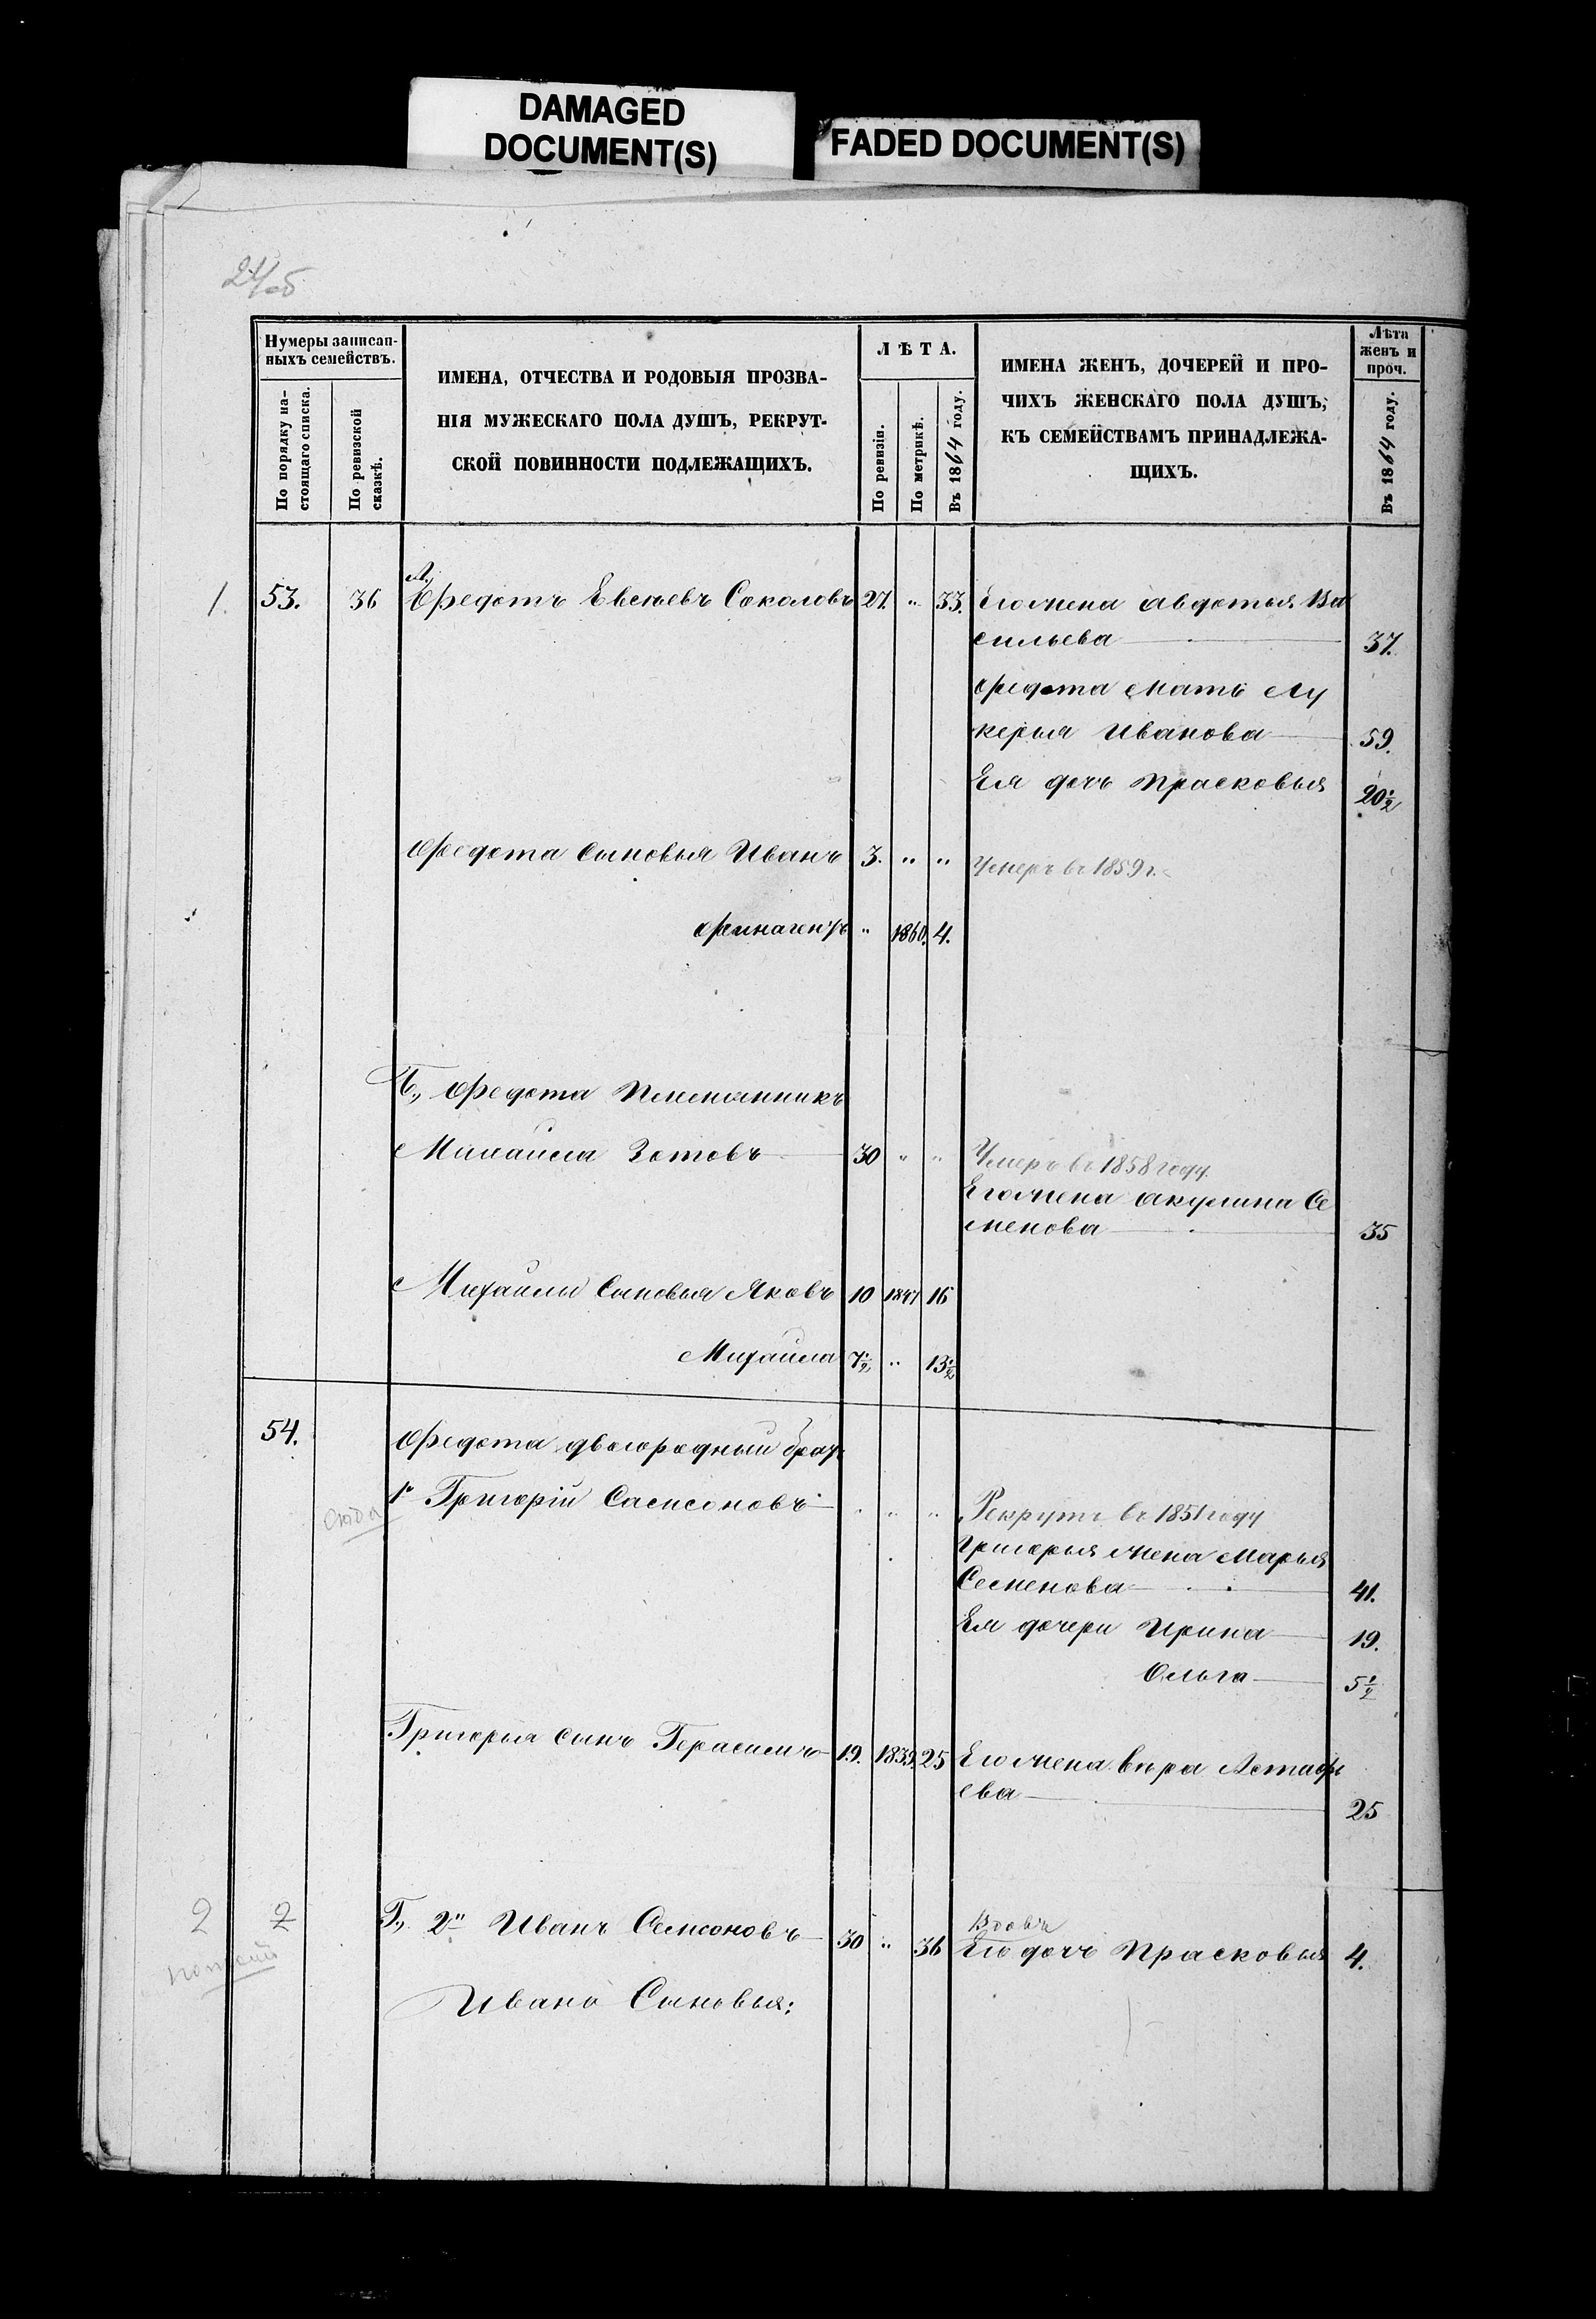 DAMAGED
DOCUMENT(S)
FADED DOCUMENT(S)
24/об
Нумеры записан-
ныхъ семействъ.
По порядку на-
стоящаго списка.
По ревизской
сказкѣ.
ИМЕНА, ОТЧЕСТВА И РОДОВЫЯ ПРОЗВА-
НІЯ МУЖЕСКАГО ПОЛА ДУШЪ, РЕКРУТ-
СКОЙ ПОВИННОСТИ ПОДЛЕЖАЩИХЪ.
ЛѢТА.
По ревизіи.
По метрикѣ.
Въ 1864 году.
ИМЕНА ЖЕНЪ, ДОЧЕРЕЙ И ПРО-
ЧИХЪ ЖЕНСКАГО ПОЛА ДУШЪ,
КЪ СЕМЕЙСТВАМЪ ПРИНАДЛЕЖА-
ЩИХЪ.
Лѣта
женъ и
проч.
Въ 1864 году.
А.,
1. 53. 36 Ѳедотъ Евсѣевъ Соколовъ 27. " 33. Его жена Авдотья Ва
сильева 37.
Ѳедота мать Лу
керья Иванова 59.
Ея дочь Прасковья 20½
Ѳедота сыновья Иванъ 3. " " Умеръ въ 1859 г.
Ѳинагенъ " 1860. 4.
Б., Ѳедота племянникъ
Михаила Зотовъ 30 " " Умеръ въ 1858 году.
Его жена Акулина Се
менова 35
Михаилы сыновья Яковъ 10 1847 16
Михаила 7½ " 13½
54. Ѳедота двоюродный братъ
1й Григорій Самсоновъ " " " Рекрутъ въ 1851 году
сюда
Григорья жена Марья
Семенова 41.
Ея дочери Ирина 19.
Ольга 5½
Григорья сынъ Герасимъ 19. 1839. 25 Его жена Вѣра Астафь
ева 25
Вдовъ
2 2 Г., 2й Иванъ Самсоновъ 30 " 36 Его дочь Прасковья 4.
Ивана Сыновья: